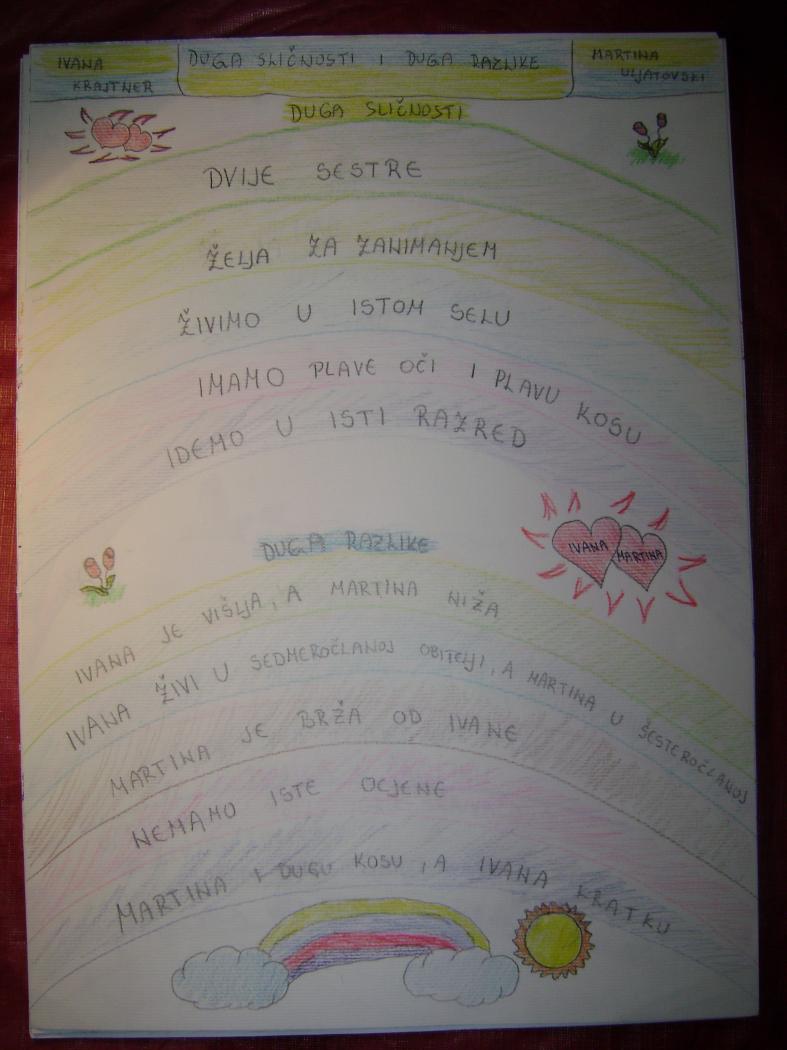 IVANA
KRAJTNER
DUGA SLIČNOSTI I DUGA RAZLIKE
MARTINA
ULJATOVSKI
DUGA SLIČNOSTI
DVIJE SESTRE
ŽELJA ZA ZANIMANJEM
ŽIVIMO U ISTOM SELU
IMAMO PLAVE OČI I PLAVU KOSU
IDEMO U ISTI RAZRED
DUGA RAZLIKE
IVANA MARTINA
IVANA JE VIŠLJA, A MARTINA NIŽA
IVANA ŽIVI U SEDMEROČLANOJ OBITELJI, A MARTINA U ŠESTEROČLANOJ
MARTINA JE BRŽA OD IVANE
NEMAMO ISTE OCJENE
MARTINA I DUGU KOSU, A IVANA KRATKU